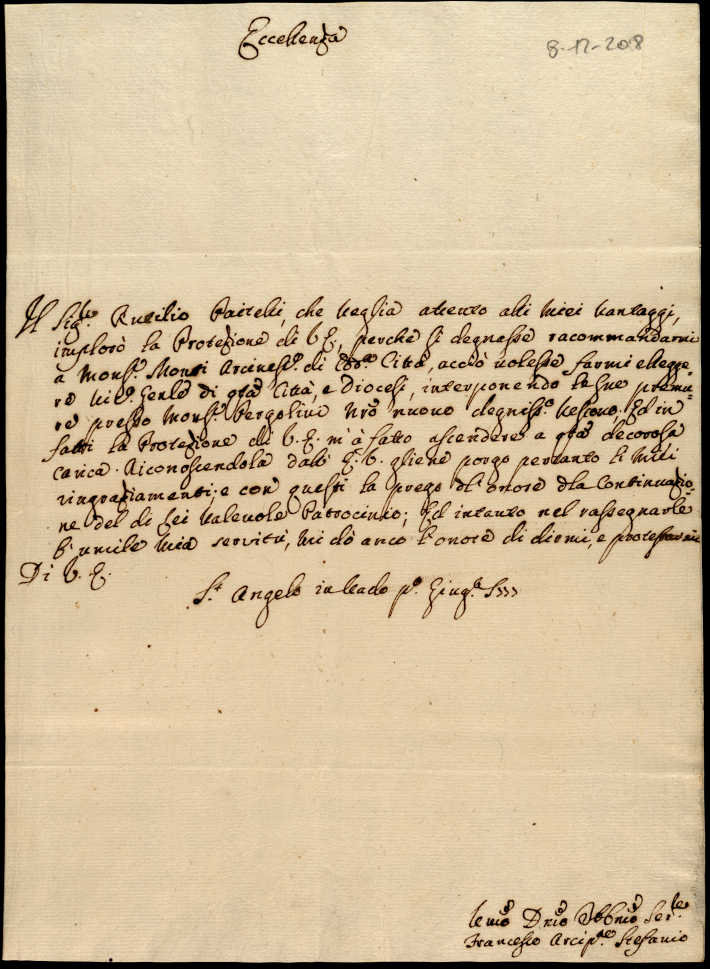 Eccellenza
8-12-208
Il Sigre Rutilio Paitelli, che veglia attento alli miei vantaggi,
implorò la Protezione di V.E., perche si degnasse raccommandarmi
a Monsr. Monti Arcivesco. di Città, acciò volesse farmi elegge=
re Vico. Genle di qta Città, e Diocesi, interponendo le sue premu=
re presso Monsr. Pergolini nro nuovo degniso. Vescovo. Ed in
fatti la Protezione di V.E. m'à fatto ascendere a qta decorosa
carica. Riconoscendola dall' E.V. gliene porgo pertanto li miei
ringraziamenti; e con questi la prego dl' onore dla Continuazio=
ne del di Lei valevole Patrocinio; Ed intanto nel rassegnarle
l'umile mia servitù, mi dò anco l'onore di dirmi, e protestarmi
Di V.E.
St. Angelo in Vado po. Giugo.
Devmo Obbmo Serre
Francesco Arcipte Stefanio